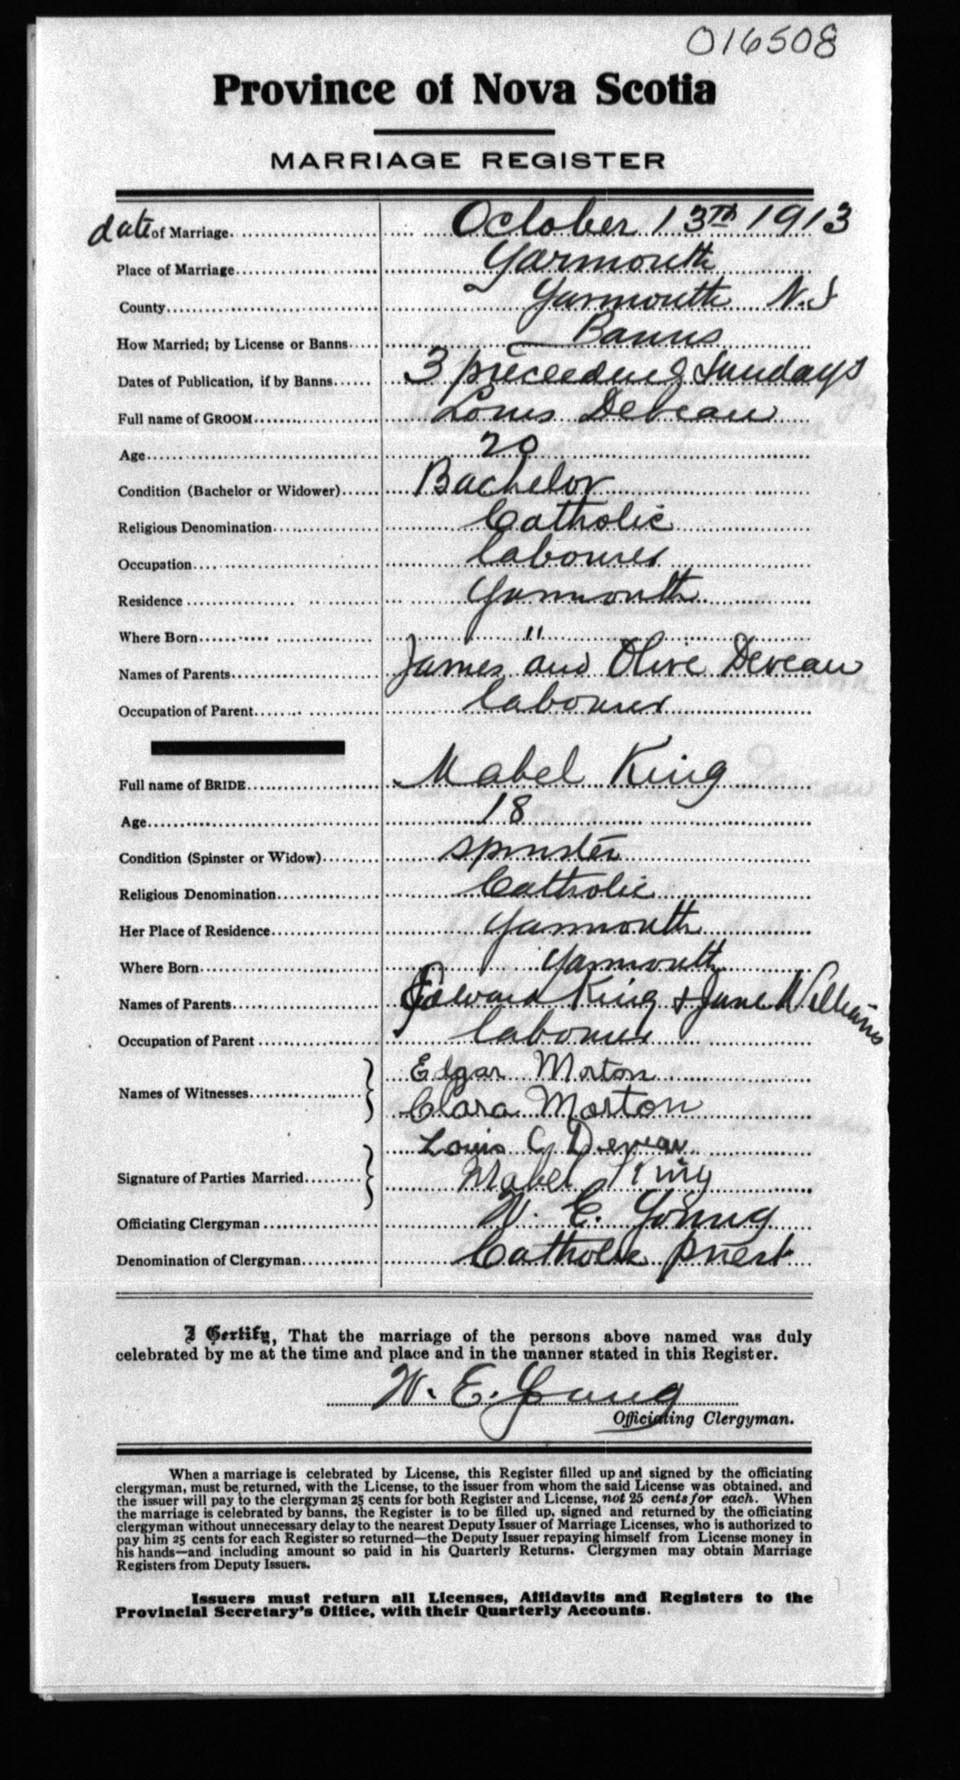 016508
Province of Nova Scotia
MARRIAGE REGISTER
date of Marriage October 13TH 1913
Place of Marriage Yarmouth
County Yarmouth N.S
How Married; by License or Banns Banns
Dates of Publication, if by Banns 3 preceeding Sundays
Full name of GROOM Louis Deveau
Age 20
Condition (Bachelor or Widower) Bachelor
Religious Denomination Catholic
Occupation labourer
Residence Yarmouth
Where Born "
Names of Parents James and Olive Deveau
Occupation of Parent labourer
Full name of BRIDE Mabel King
Age 18
Condition (Spinster or Widow) spinster
Religious Denomination Catholic
Her Place of Residence Yarmouth
Where Born Yarmouth
Names of Parents Edward King & Jane Williams
Occupation of Parent labourer
Names of Witnesses Edgar Morton
Clara Morton
Signature of Parties Married Louis C Deveau
Mabel King
Officiating Clergyman W. E. Young
Denomination of Clergyman Catholic priest
I Certify, That the marriage of the persons above named was duly
celebrated by me at the time and place and in the manner stated in this Register.
W. E. Young
Officiating Clergyman.
When a marriage is celebrated by License, this Register filled up and signed by the officiating
clergyman, must be returned, with the License, to the issuer from whom the said License was obtained, and
the issuer will pay to the clergyman 25 cents for both Register and License, not 25 cents for each. When
the marriage is celebrated by banns, the Register is to be filled up, signed and returned by the officiating
clergyman without unnecessary delay to the nearest Deputy Issuer of Marriage Licenses, who is authorized to
pay him 25 cents for each Register so returned—the Deputy Issuer repaying himself from License money in
his hands—and including amount so paid in his Quarterly Returns. Clergymen may obtain Marriage
Registers from Deputy Issuers.
Issuers must return all Licenses, Affidavits and Registers to the
Provincial Secretary's Office, with their Quarterly Accounts.